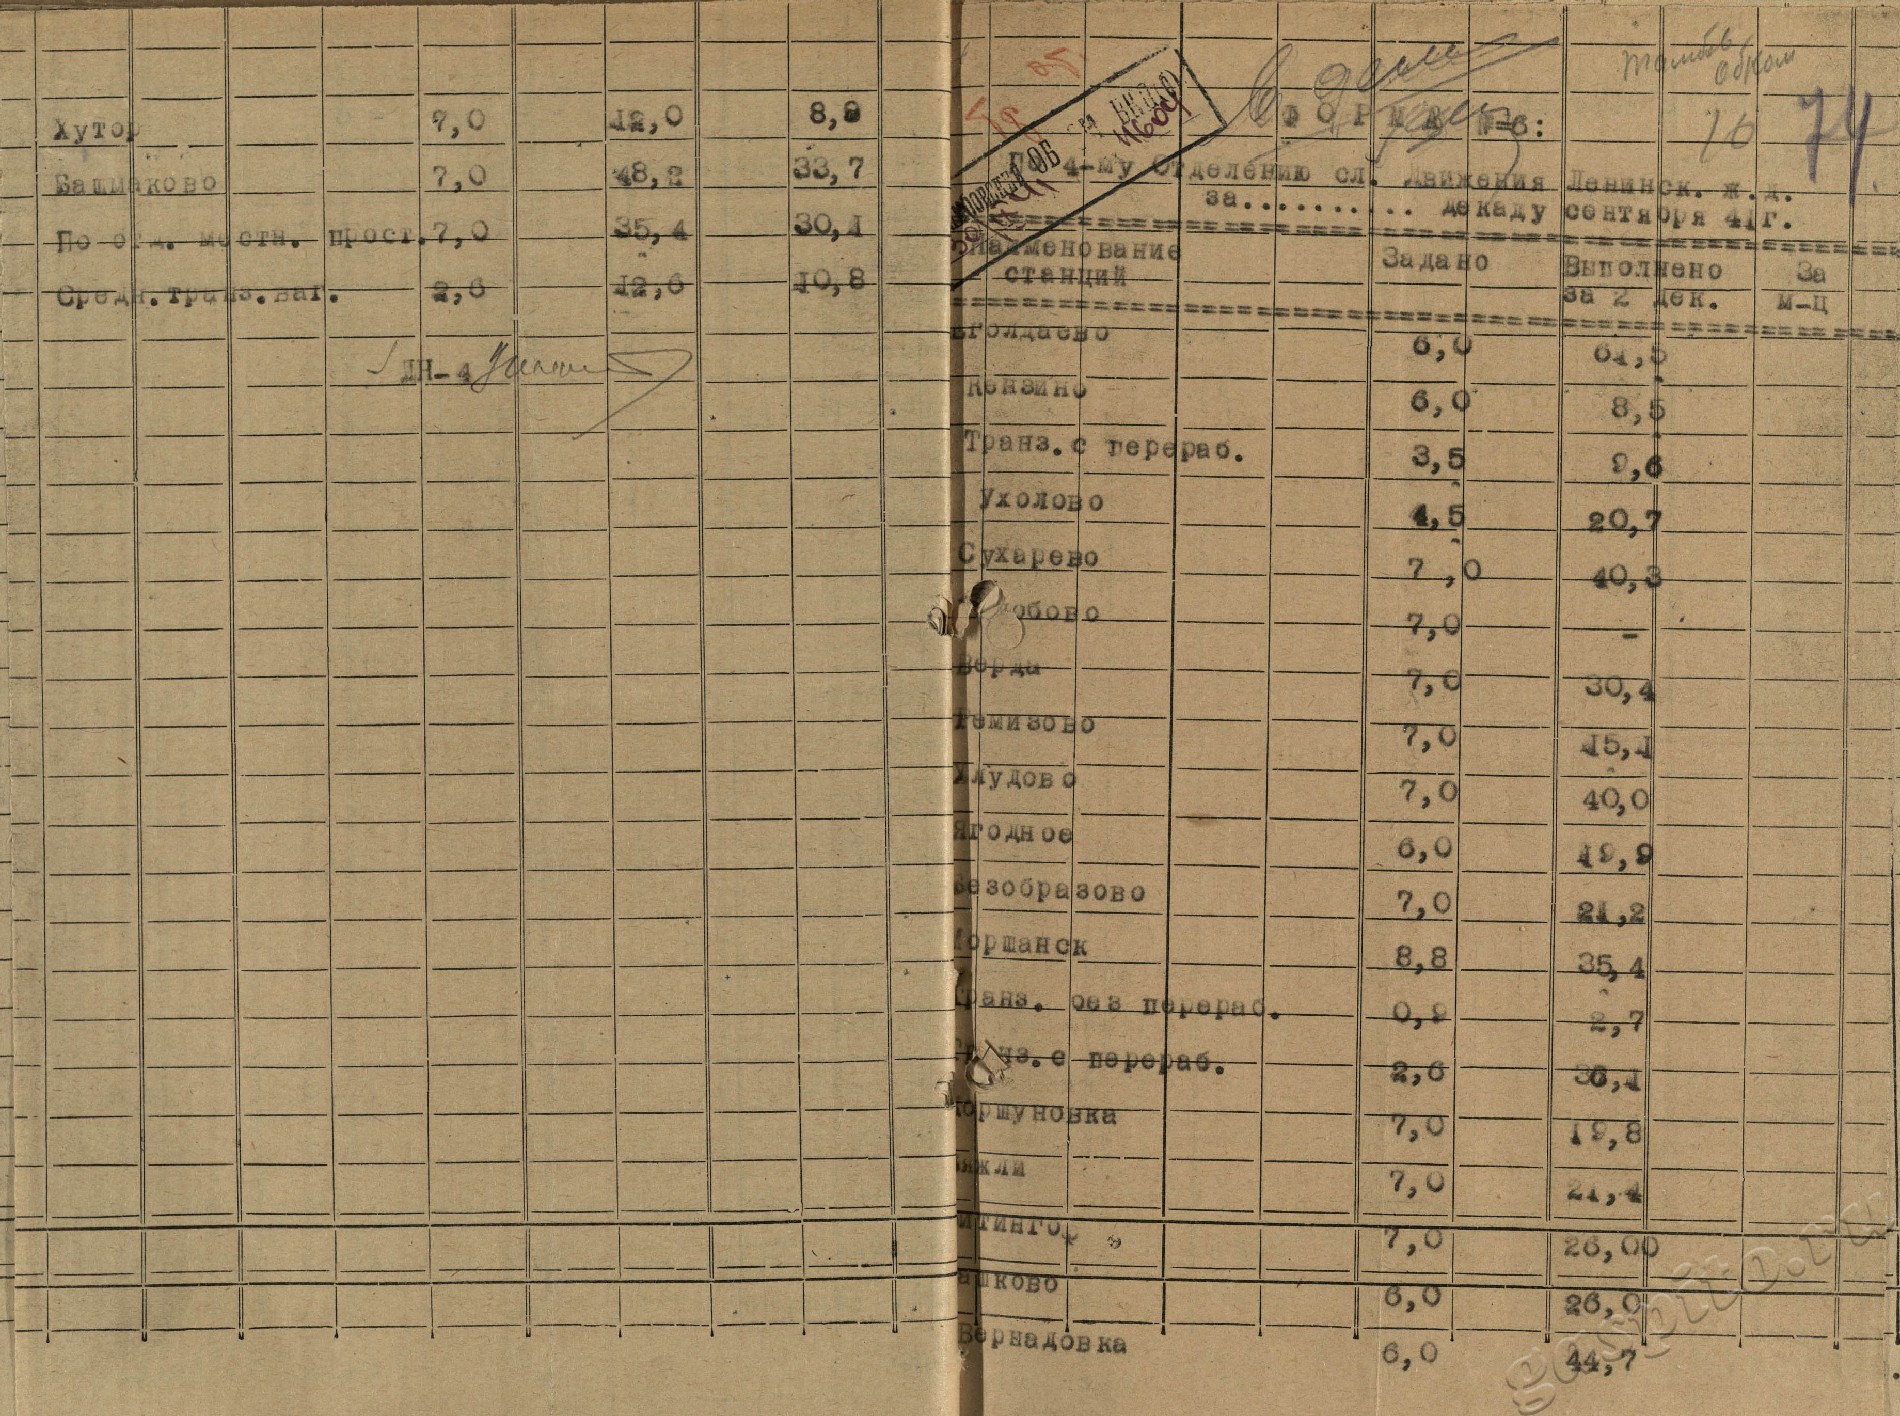 Хутор 7,0 12,0 8,8
Башмаково 7,0 48,2 33,7
По отд. местн. прост. 7,0 35,4 30,1
Средн.транз.ваг. 2,6 12,6 10,8
ДН-4
Тамбов
обком
76 74
В дело
ФОРМА №-6:
По 4-му Отделению сл. Движения Ленинск. ж.д.
за.......... декаду сентября 41г.
Наименование станций Задано Выполнено за 2 дек. За м-ц
Еголдаево 6,0 61,5
Кензино 6,0 8,5
Транз.с перераб. 3,5 9,6
Ухолово 4,5 20,7
Сухарево 7,0 40,3
обово 7,0 -
Верда 7,0 30,4
Ремизово 7,0 15,1
Хлудово 7,0 40,0
Ягодное 6,0 19,9
Безобразово 7,0 21,2
Моршанск 8,8 35,4
Транз. без перераб. 0,9 2,7
Транз.с перераб. 2,6 36,1
Коршуновка 7,0 19,8
Вяжли 7,0 21,4
итингоф 7,0 26,00
ашково 6,0 26,0
Вернадовка 6,0 44,7
gaspito.ru